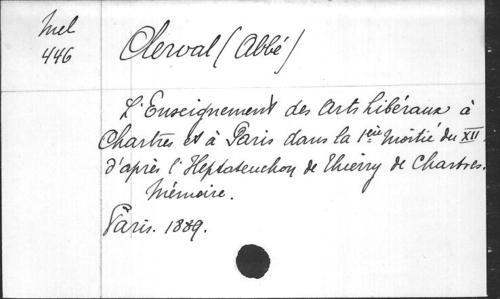 Mel
446
Clerval (Abbé)
L'Enseignement des Arts libéraux à
Chartres et à Paris dans la 1ère Moitié du XII
d'après l'Heptateuchon de Thierry de Chartres.
Mémoire.
Paris. 1889.